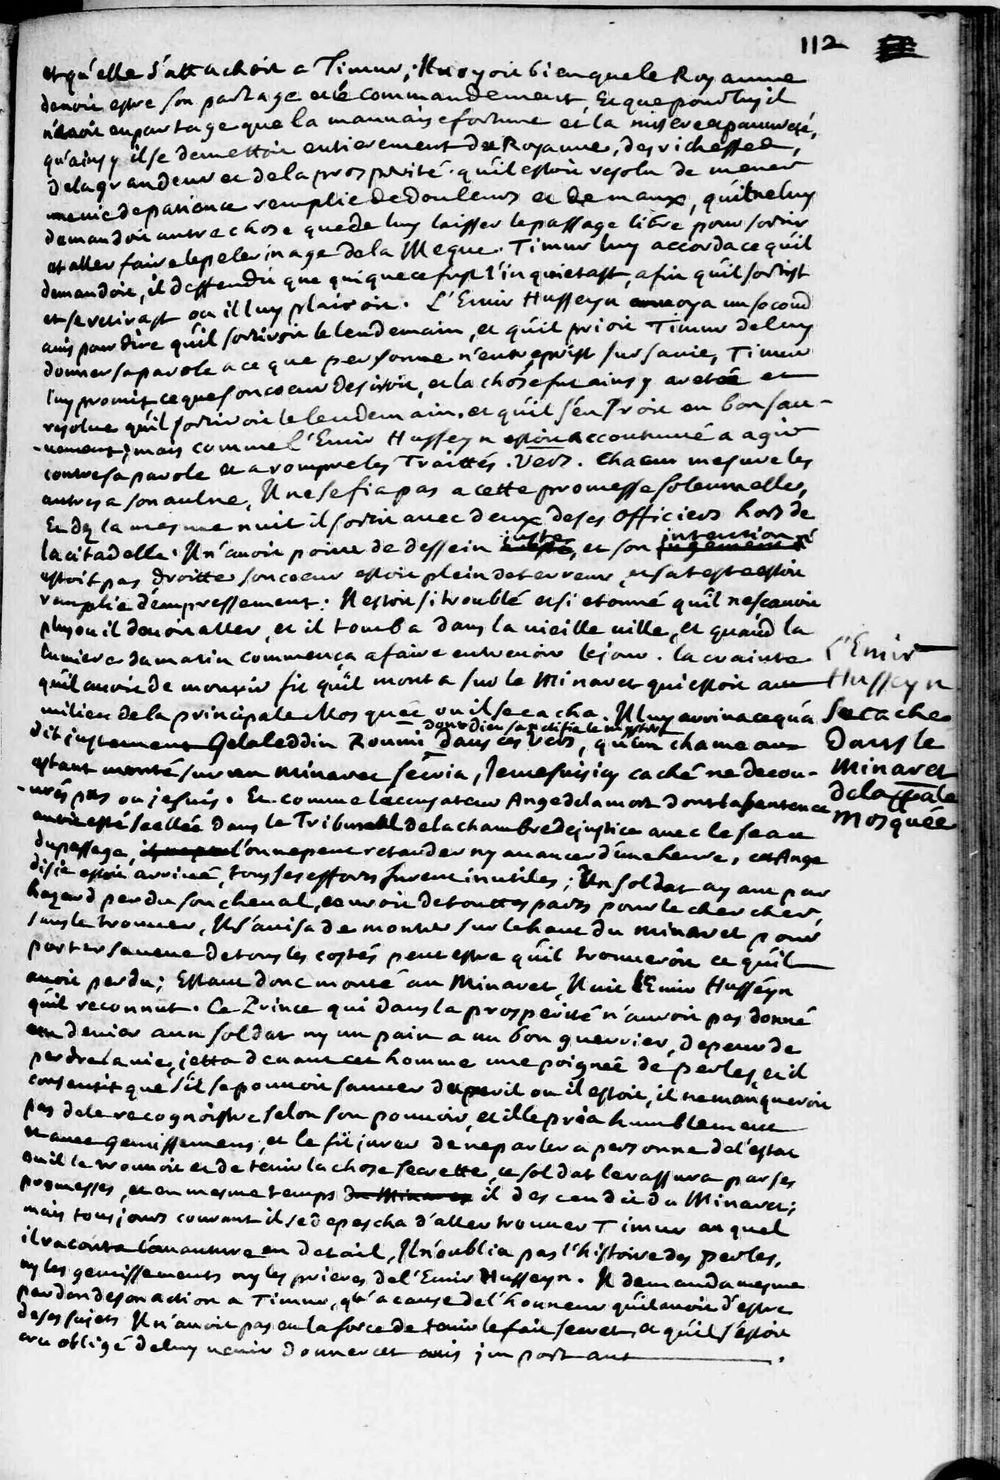 112
et qu'elle s'attachoit a Timur; Il voyoit bien que le Royaume
devoit estre son partage et le commandement, Et que pour luy il
n'avoit en partage que la mauvaise fortune et la misere et pauvreté,
qu'ainsy il se demettoit entierement du Royaume, des richesses,
de la grandeur et de la prosperité. qu'il estoit resolu de mener
une vie de patience remplie de douleurs et de maux, qu'il ne luy
demandoit autre chose que de luy laisser le passage libre pour sortir
et aller faire le pelerinage de la Meque. Timur luy accorda ce qu'il
demandoit, il deffendit que qui que ce fust l'inquietast, afin qu'il sortist
et se retirast ou il luy plairoit. L'Emir Husseyn envoya un second
avis pour dire qu'il sortiroit le lendemain, et qu'il prioit Timur de luy
donner sa parole a ce que personne n'entreprist sur sa vie, Timur
luy promit ce que son coeur desiroit, et la chose fut ainsy aretée et
resolue qu'il sortiroit le lendemain, et qu'il s'en iroit en bon sau-
-vement; mais comme l'Emir Husseyn estoit accoutumé a agir
contre sa parole et a rompre les Traittés. Vers. Chacun mesure les
autres a son aulne, Il ne se fia pas a cette promesse solennelle,
Et dez la mesme nuit il sortit avec deux de ses officiers hors de
la citadelle. Il n'avoit point de dessein juste, et son intention n'
estoit pas droitte, son coeur estoit plein de terreur, et sa teste estoit
remplie d'empressement: Il estoit si troublé et si etonné qu'il ne sçavoit
plus ou il devoit aller, et il tomba dans la vieille ville, et quand la
lumiere du matin commença a faire entrevoir le jour. la crainte
qu'il avoit de mourir fit qu'il monta sur le Minaret qui estoit au
milieu de la principale Mosquée ou il se cacha. Il luy arriva ce qu'a
dit justement Gelaleddin Roumi dont dieu sanctifie le mystere dans ces vers, qu'un chameau
estant monté sur un minaret s'écria, Je me suis icy caché ne decou-
-vrés pas ou je suis. Et comme l'écusateur Ange de la mort dont la sentence
avoit esté scellée dans le Tribunal de la chambre de justice avec le seau
du passage, l'on ne peut retarder ny avancer d'une heure, cet Ange
dis-je estoit arrivé, tous ses efforts furent inutiles; Un soldat ayant par
hazard perdu son cheval, couroit de touttes parts pour le chercher,
sans le trouver, Il s'avisa de monter sur le haut du minaret pour
porter sa veue de tous les costés peut estre qu'il trouveroit ce qu'il
avoit perdu; Estant donc monté au Minaret, Il vit l'Emir Husséyn
qu'il reconnut. Ce Prince qui dans la prosperité n'auroit pas donné
un denier a un soldat ny un pain a un bon guerrier, de peur de
perdre la vie, jetta devant cet homme une poignée de perles, et il
consentit que s'il se pouvoit sauver du peril ou il estoit, il ne manqueroit
pas de le recognoistre selon son pouvoir, et il le pria humblement
et avec gemissemens, et le fit jurer de ne parler a personne de l'estat
ou il le trouvoit et de tenir la chose secrette, ce soldat le rassura par ses
promesses, et en mesme temps il descendit du Minaret;
mais tousjours courant il se depescha d'aller trouver Timur auquel
il raconta l'avanture en detail, Il n'oublia pas l'histoire des perles,
ny les gemissements ny les prieres de l'Emir Husseyn. Il demanda mesme
pardon de son action a Timur, qu'a cause de l'honneur qu'il avoit d'estre
de ses sujets Il n'avoit pas eu la force de tenir le fait secret, et qu'il s'estoit
cru obligé de luy venir donner cet avis important.
L'Emir
Husseyn
se cache
dans le
Minaret
de la
Mosquée